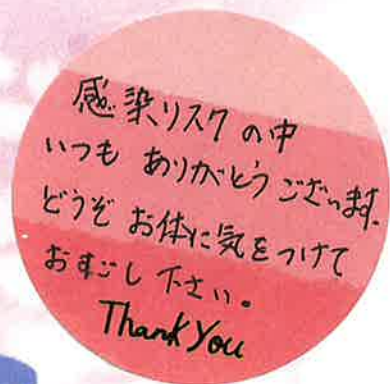 感染リスクの中
いつも ありがとうございます。
どうぞ お体に気をつけて
おすごし 下さい。
Thank You